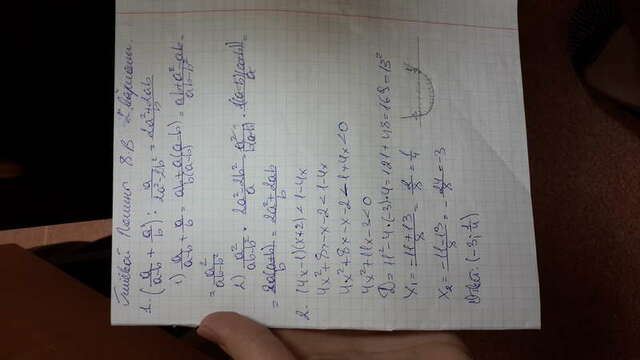 Полины 8 В 2 вариант.
1. (a/(a-b) + a/b) : a/(2a²-2b²) = (2a²+2ab)/b
1) a/(a-b) + a/b = (ab+a(a-b))/(b(a-b)) = (ab+a²-ab)/(ab-b²) =
= a²/(ab-b²)
2) a²/(ab-b²) · (2a²-2b²)/a = a²/(b(a-b)) · (2(a-b)(a+b))/a =
= (2a(a+b))/b = (2a²+2ab)/b
2. (4x-1)(x+2)<1-4x
4x²+8x-x-2<1-4x
4x²+8x-x-2-1+4x<0
4x²+11x-3<0
D=11²-4·(-3)·4=121+48=169=13²
x₁=(-11+13)/8=2/8=1/4
x₂=(-11-13)/8=-24/8=-3
Ответ: (-3; 1/4)